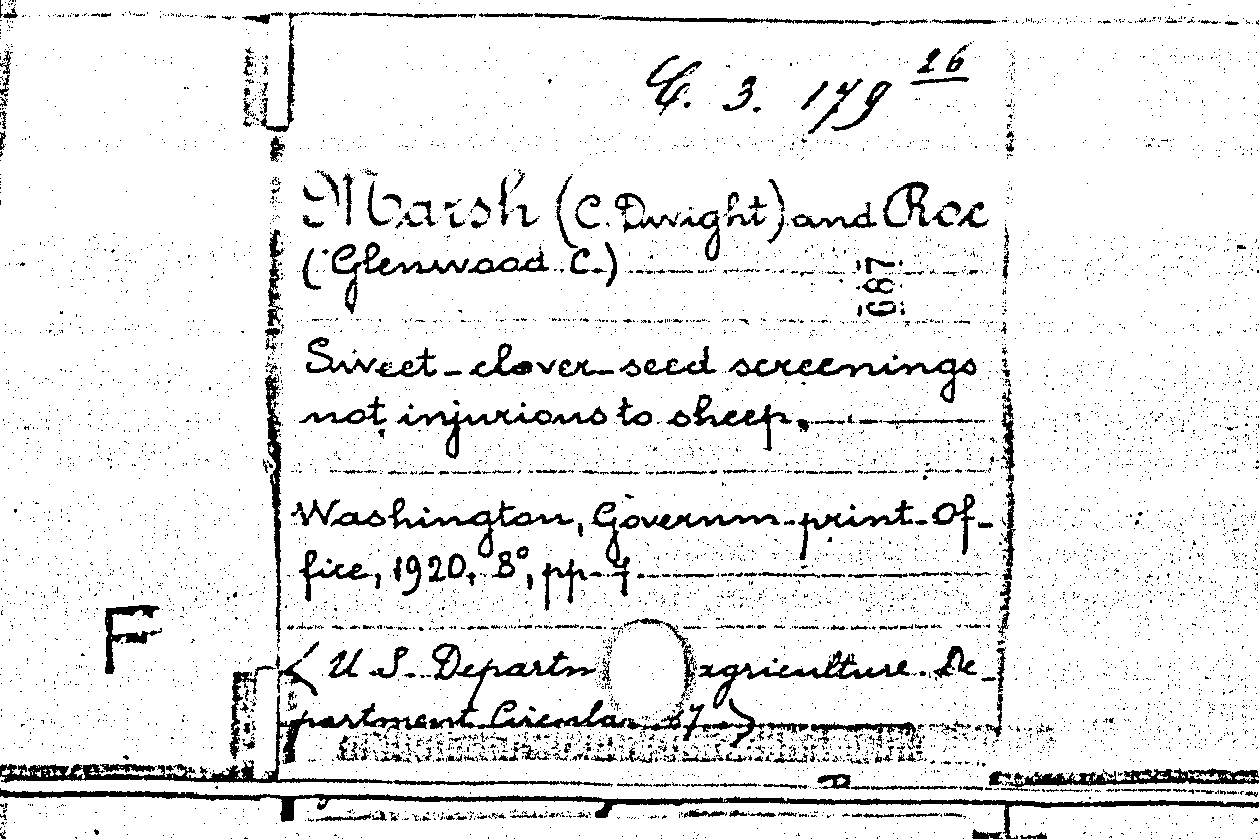 C. 3. 179 26
Marsh (C. Dwight) and Roe
(Glenwood C.)
687
Sweet-clover-seed screenings
not injurious to sheep.
Washington, Governm. print. Of-
fice, 1920, 8°, pp. 7
< U. S. Departm agriculture. De-
partment Circular 87 >
F